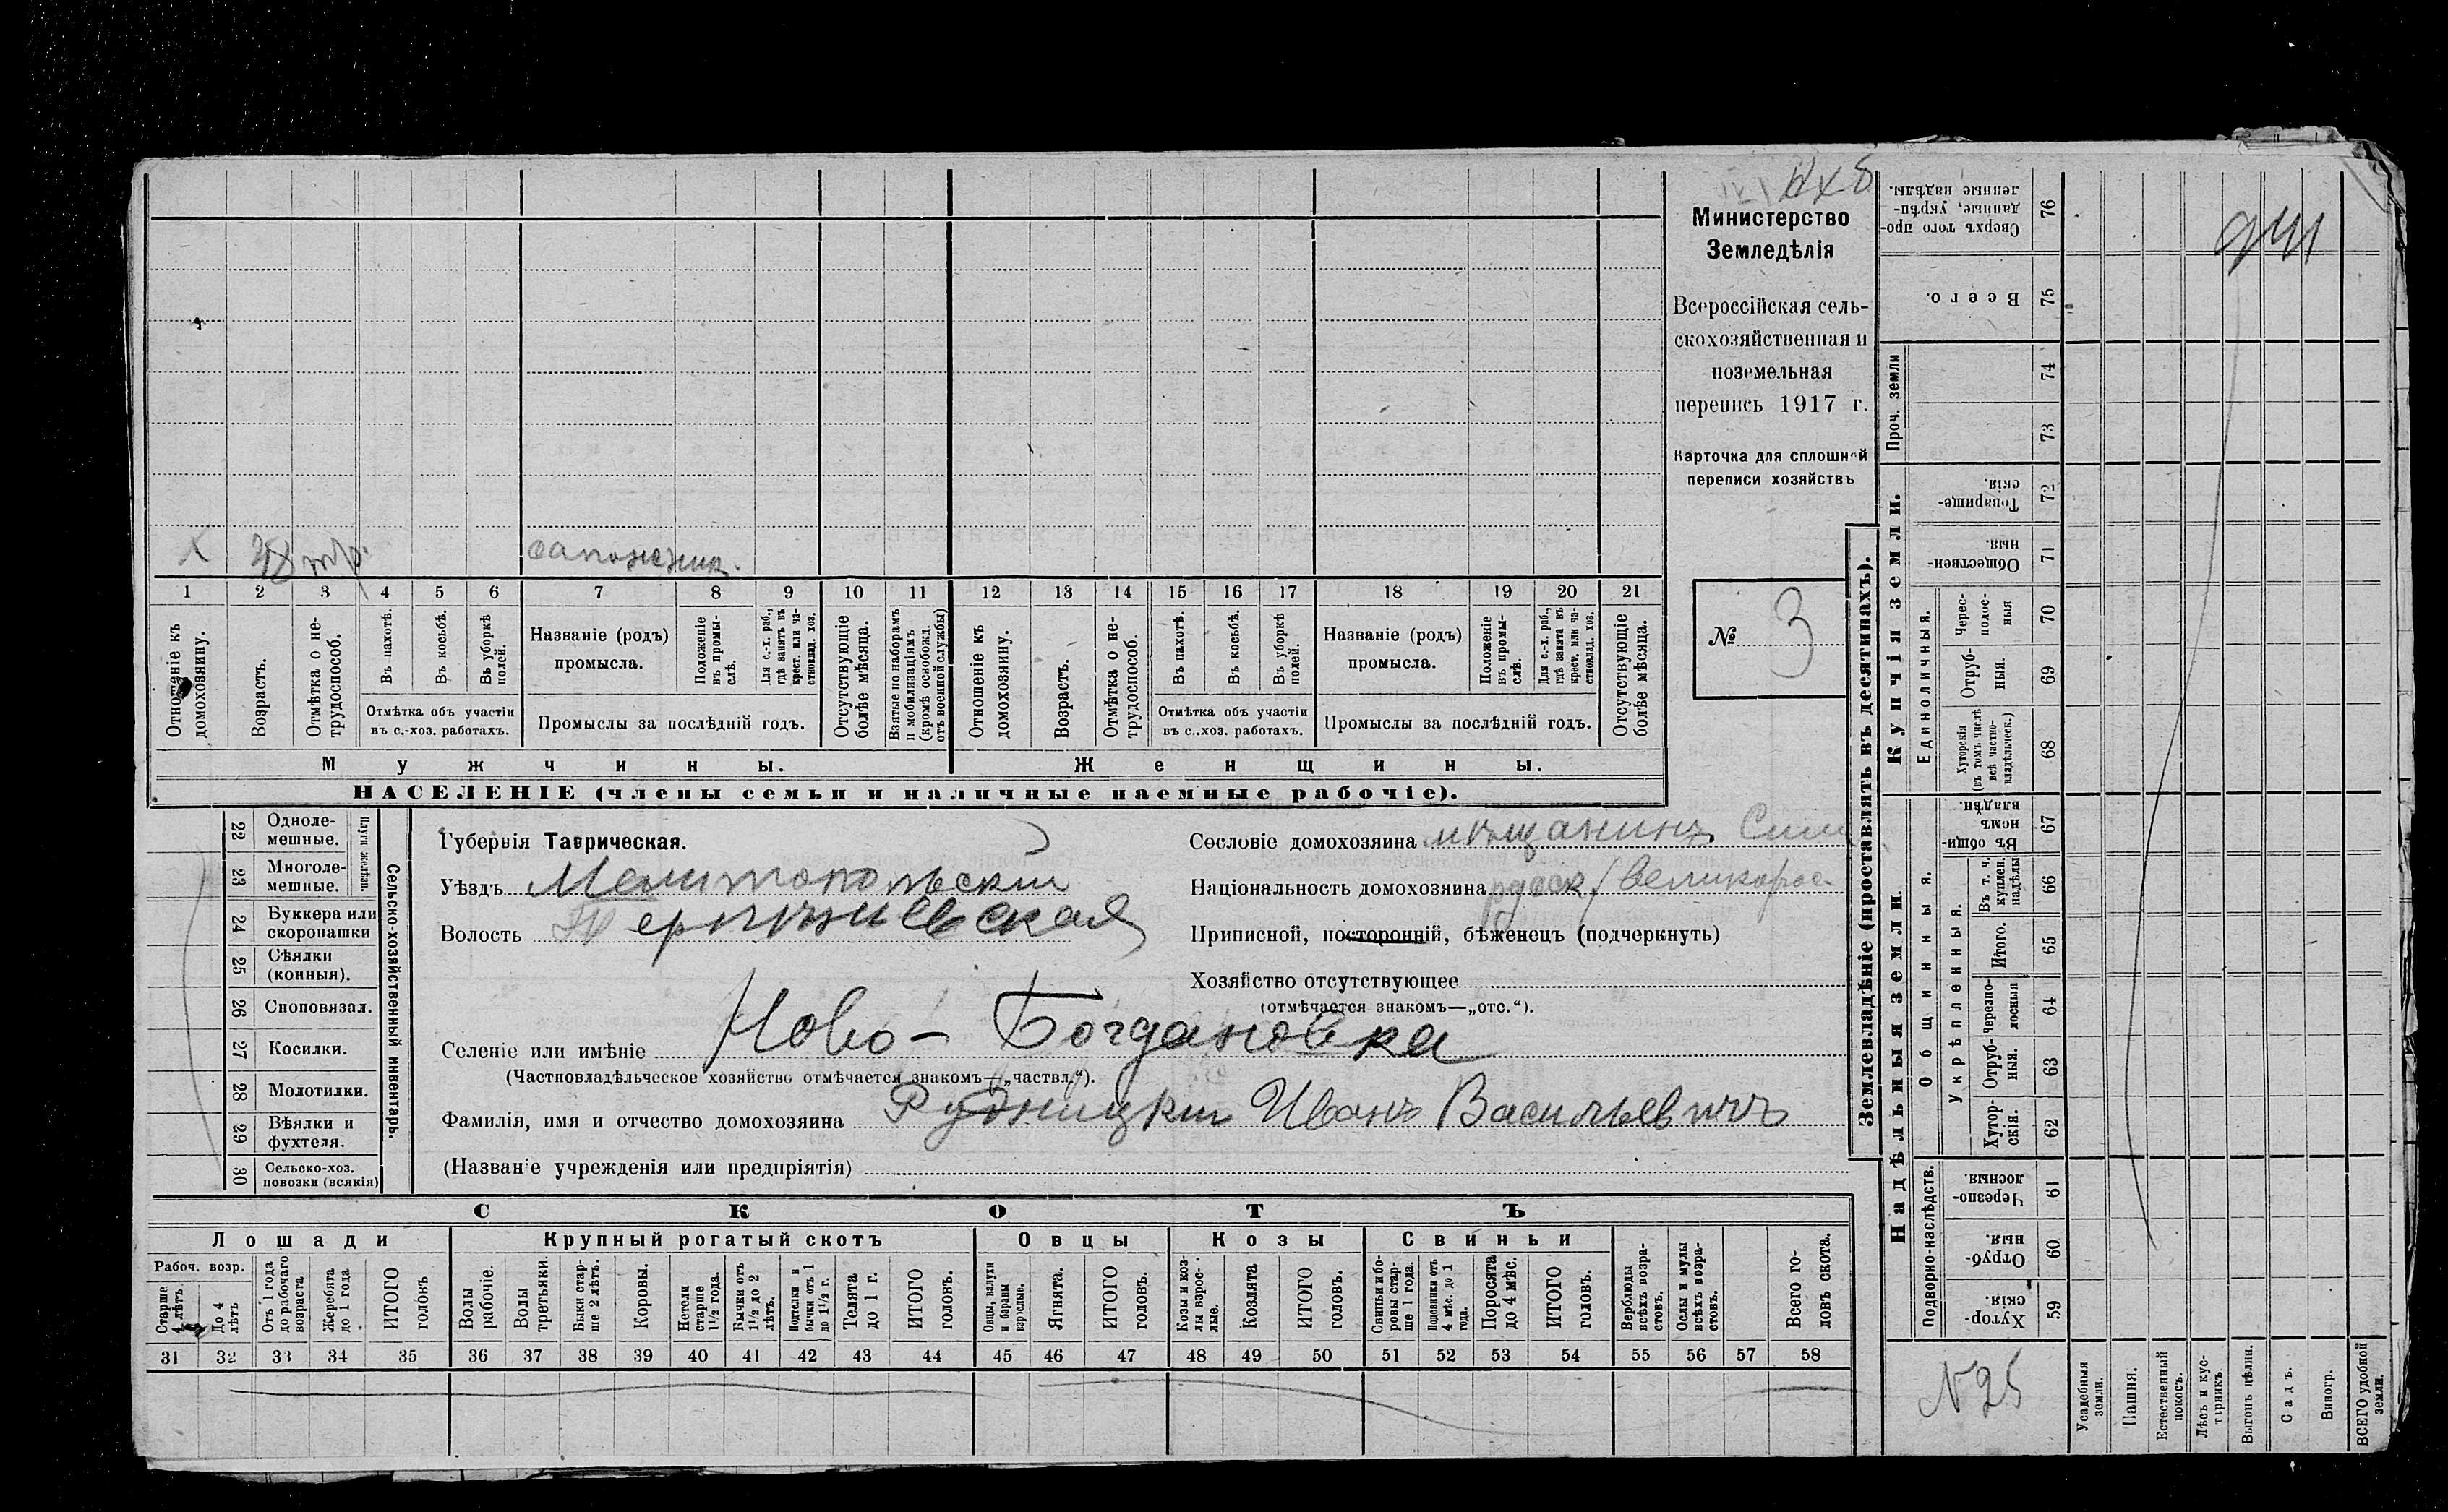 Министерство
Земледѣлія
Всероссійская сель-
скохозяйственная и
поземельная
перепись 1917 г.
Карточка для сплошной
переписи хозяйствъ
№ 3
Х 38 сапожник.
1 2 3 4 5 6 7 8 9 10 11 12 13 14 15 16 17 18 19 20 21
Отношеніе къ домохозяину.
Возрастъ.
Отмѣтка о не-трудоспособ.
Въ пахотѣ.
Въ косьбѣ.
Въ уборкѣ полей.
Отмѣтка объ участіи
въ с.-хоз. работахъ.
Названіе (родъ)
промысла.
Положеніе въ промы-слѣ.
Для с.-х. раб., гдѣ занятъ въ крест. или ча-стновлад. хоз.
Промыслы за послѣдній годъ.
Отсутствующіе болѣе мѣсяца.
Взятые по наборамъ и мобилизаціямъ (кромѣ освобожд. отъ военной службы)
Отношеніе къ домохозяину.
Возрастъ.
Отмѣтка о не-трудоспособ.
Въ пахотѣ.
Въ косьбѣ.
Въ уборкѣ полей.
Отмѣтка объ участіи
въ с..хоз. работахъ.
Названіе (родъ)
промысла.
Положеніе въ промы-слѣ.
Для с.-х. раб., гдѣ занята въ крест. или ча-стновлад. хоз.
Промыслы за послѣдній годъ.
Отсутствующіе болѣе мѣсяца.
Мужчины. Женщины.
НАСЕЛЕНІЕ (члены семьи и наличные наемные рабочіе).
Сельско-хозяйственный инвентарь.
Плуги желѣзн.
22 Одноле-мешные.
23 Многоле-мешные.
24 Буккера или скоропашки
25 Сѣялки (конныя).
26 Сноповязал.
27 Косилки.
28 Молотилки.
29 Вѣялки и фухтеля.
30 Сельско-хоз. повозки (всякія)
Губернія Таврическая.
Уѣздъ Мелитопольскій
Волость Терпѣніевская
Селеніе или имѣніе Ново-Богдановка
(Частновладѣльческое хозяйство отмѣчается знакомъ—„частвл.“).
Фамилія, имя и отчество домохозяина Рудницкій Иванъ Васильевичъ
(Названіе учрежденія или предпріятія)
Сословіе домохозяина мѣщанинъ Сим
Національность домохозяина русск/великорос.
Приписной, посторонній, бѣженецъ (подчеркнуть)
Хозяйство отсутствующее
(отмѣчается знакомъ—„отс.“).
СКОТЪ
Лошади Крупный рогатый скотъ Овцы Козы Свиньи
Рабоч. возр.
Старше 4 лѣтъ
До 4 лѣтъ
Отъ 1 года до рабочаго возраста
Жеребята до 1 года
ИТОГО головъ
Волы рабочіе.
Волы третьяки.
Быки стар-ше 2 лѣтъ.
Коровы.
Нетели старше 1½ года.
Бычки отъ 1½ до 2 лѣтъ.
Подтелки и бычки отъ 1 до 1½ г.
Телята до 1 г.
ИТОГО головъ.
Овцы, валухи и бараны взрослые.
Ягнята.
ИТОГО головъ.
Козы и коз-лы взрос-лые.
Козлята
ИТОГО головъ.
Свиньи и бо-ровы стар-ше 1 года.
Подсвинки отъ 4 мѣс. до 1 года.
Поросята до 4 мѣс.
ИТОГО головъ.
Верблюды всѣхъ возра-стовъ.
Ослы и мулы всѣхъ возра-стовъ.
Всего го-ловъ скота.
31 32 33 34 35 36 37 38 39 40 41 42 43 44 45 46 47 48 49 50 51 52 53 54 55 56 57 58
Землевладѣніе (проставлять въ десятинахъ).
Купчія земли.
Надѣльныя земли.
Сверхъ того про-данные, укрѣп-ленные надѣлы. 76
Всего. 75
Проч. земли
74
73
Товарище-скія. 72
Обществен-ныя. 71
Единоличныя.
Черес-полос-ныя 70
Отруб-ныя. 69
Хуторскія (въ томъ числѣ всѣ частно-владѣльческ.) 68
Общинныя.
Въ общи-номъ владѣн. 67
Укрѣпленныя.
Въ т. ч. куплен. надѣлы 66
Итого. 65
Черезпо-лосныя 64
Отруб-ныя. 63
Хутор-скія. 62
Подворно-наслѣдств.
Черезпо-лосныя. 61
Отруб-ныя. 60
Хутор-скія. 59
N 25
Усадебныя земли.
Пашня.
Естественный покосъ.
Лѣсъ и кус-тарникъ.
Выгонъ цѣлин.
Садъ.
Виногр.
ВСЕГО удобной земли.